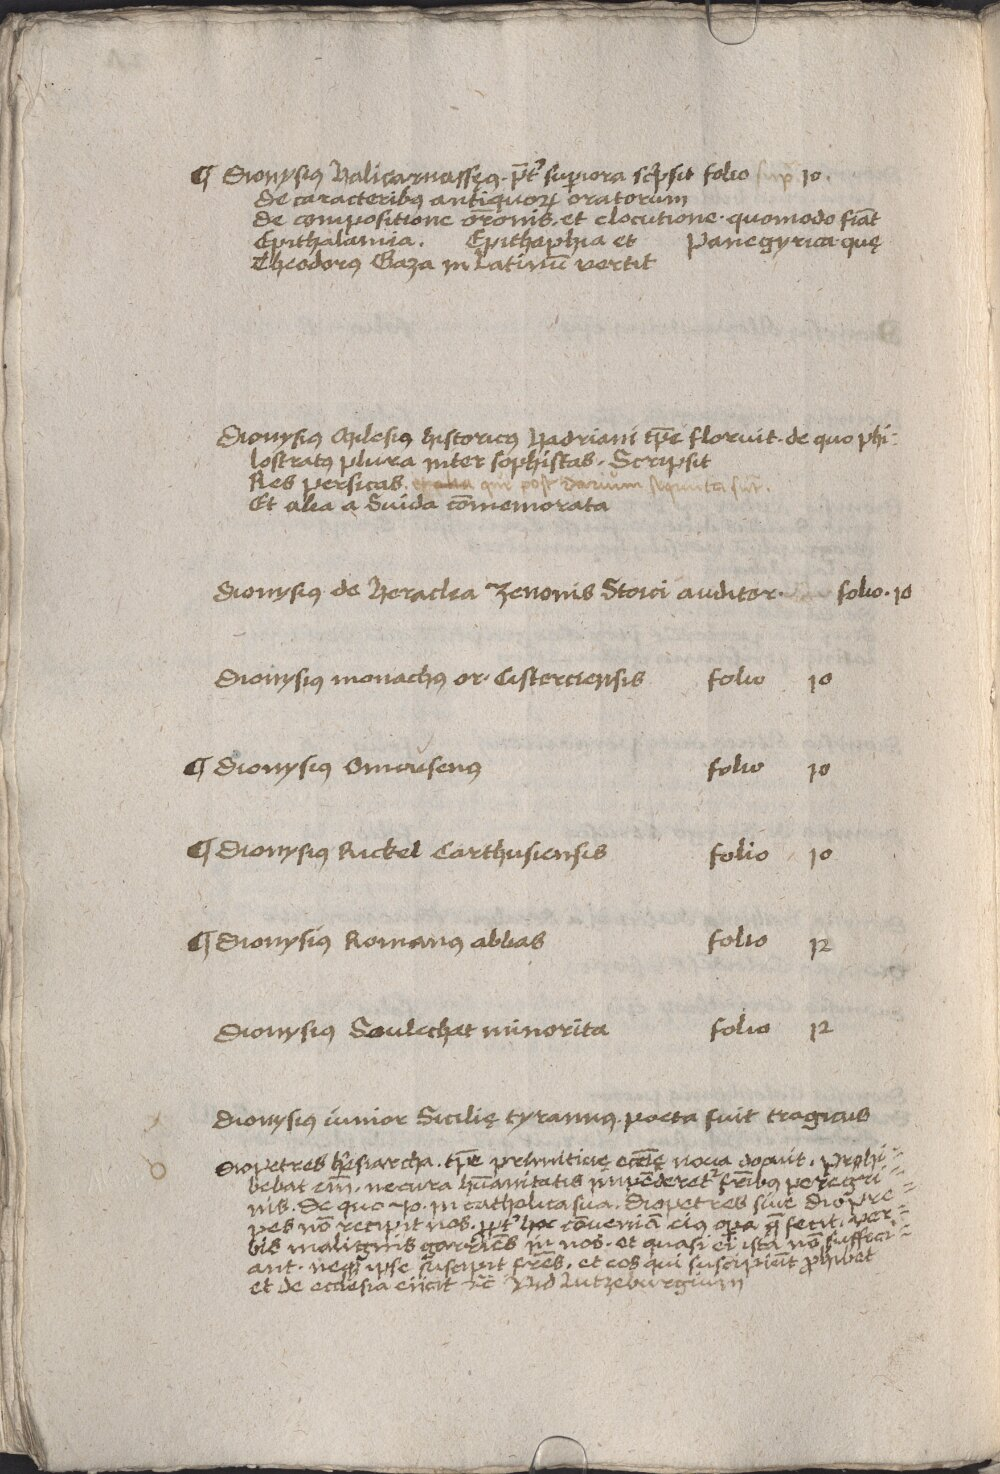 ¶ Dionysiꝰ Halicarnassęꝰ. p̄tꝰ supiora scͥpsit folio 10.
de caracteribꝰ antiquoꝝ oratorum
de compositione or̄onis. et elocutione. quomodo fiāt
Epithalamia. Epithaphia et Panegyrica quę
Theodorꝰ Gaza in Latinū vertit
Dionysiꝰ Milesiꝰ historicꝰ Hadriani tp̄e floruit. de quo phi:
lostratꝰ plura inter sophistas. Scripsit
Res persicas. et alia que post Darium sequuta sūt.
Et alia a Suida cōmemorata
Dionysiꝰ de Heraclea Zenonis Stoici auditor. folio. 10
Dionysiꝰ monachꝰ or. Cisterciensis folio 10
¶ Dionysiꝰ Omousenꝰ folio 10
¶ Dionysiꝰ Rickel Carthusiensis folio 10
¶ Dionysiꝰ Romanꝰ abbas folio 12
Dionysiꝰ Soulechat minorita folio 12
Dionysiꝰ iunior Sicilię tyrannꝰ. poeta fuit tragicus
Diopetres hęsiarcha. tp̄e primitiuę eccl̄ię noua docuit. Prohi=
bebat em̄. ne cura hūanitatis impēderetᷣ fr̄ibꝰ peregri=
nis. De quo Jo. in catholica sua. Diopetres siue Diopre=
pes nō recipit nos. p̄ptᷣ hoc cōueniā eiꝰ oꝑa q̄ fecit. ver=
bis malignis garriēs in nos. et quasi ei ista nō suffici=
ant. neq̄ ipse suscipit fr̄es. et eos qui suscipiūt ꝓhibet
et de ecclesia eiicit ⁊c̄ Vid Lutzeburgium